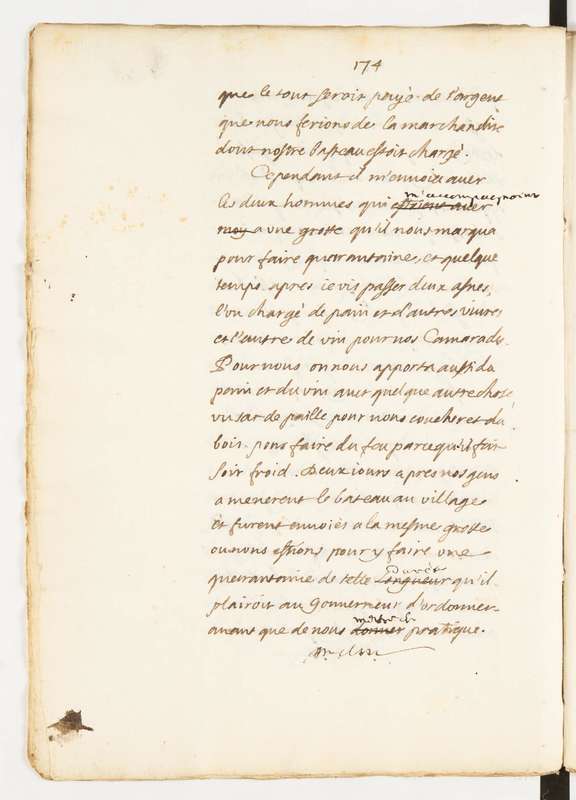 174
que le tout seroit payé de l'argent
que nous ferions de la marchandise
dont nostre basteau estoit chargé.
Cependant il m'envoia avec
m'accompagnoient
les deux hommes qui estoient avec
moy a une grotte qu'il nous marqua
pour faire quarantaine, et quelque
temps apres ie vis passer deux asnes,
l'un chargé de pain et d'autres vivres
et l'autre de vin pour nos Camarades.
Pour nous on nous apporta aussi du
pain et du vin avec quelque autre chose,
un sac de paille pour nous coucher et du
bois pour faire du feu parcequ'il fai
soit froid. Deux jours apres nos gens
amenerent le bateau au village
et furent envoiés a la mesme grotte
ou nous estions pour y faire une
durée
quarantaine de telle longueur qu'il
plairoit au Gouverneur d'ordonner
avant que de nous donner pratique.